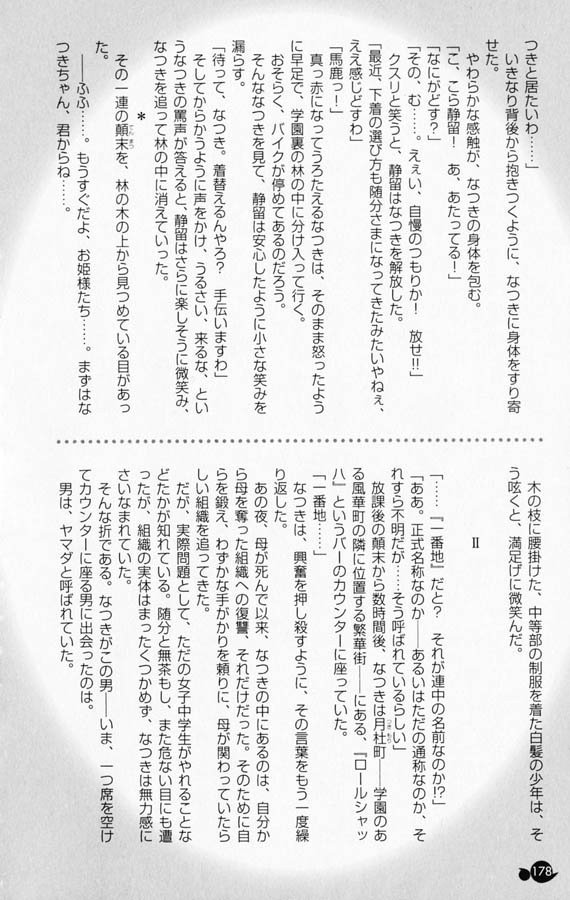 つきと居たいわ……」
いきなり背後から抱きつくように、なつきに身体をすり寄
せた。
やわらかな感触が、なつきの身体を包む。
「こ、こら静留！　あ、あたってる！」
「なにがどす？」
「その、む……。えぇい、自慢のつもりか！　放せ!!」
クスリと笑うと、静留はなつきを解放した。
「最近、下着の選び方も随分さまになってきたみたいやねぇ、
ええ感じどすわ」
「馬鹿っ！」
真っ赤になってうろたえるなつきは、そのまま怒ったよう
に早足で、学園裏の林の中に分け入って行く。
おそらく、バイクが停めてあるのだろう。
そんななつきを見て、静留は安心したように小さな笑みを
漏らす。
「待って、なつき。着替えるんやろ？　手伝いますわ」
そしてからかうように声をかけ、うるさい、来るな、とい
うなつきの罵声が答えると、静留はさらに楽しそうに微笑み、
なつきを追って林の中に消えていった。
＊
その一連の顛末を、林の木の上から見つめている目があっ
た。
――ふふ……。もうすぐだよ、お姫様たち……。まずはな
つきちゃん、君からね……。
木の枝に腰掛けた、中等部の制服を着た白髪の少年は、そ
う呟くと、満足げに微笑んだ。
Ⅱ
「……『一番地』だと？　それが連中の名前なのか!?」
「ああ。正式名称なのか――あるいはただの通称なのか、そ
れすら不明だが……そう呼ばれているらしい」
放課後の顛末から数時間後、なつきは月杜町――学園のあ
る風華町の隣に位置する繁華街――にある、『ロールシャッ
ハ』というバーのカウンターに座っていた。
「一番地……」
なつきは、興奮を押し殺すように、その言葉をもう一度繰
り返した。
あの夜、母が死んで以来、なつきの中にあるのは、自分か
ら母を奪った組織への復讐、それだけだった。そのために自
らを鍛え、わずかな手がかりを頼りに、母が関わっていたら
しい組織を追ってきた。
だが、実際問題として、ただの女子中学生がやれることな
どたかが知れている。随分と無茶もし、また危ない目にも遭
ったが、組織の実体はまったくつかめず、なつきは無力感に
さいなまれていた。
そんな折である。なつきがこの男――いま、一つ席を空け
てカウンターに座る男に出会ったのは。
男は、ヤマダと呼ばれていた。
178